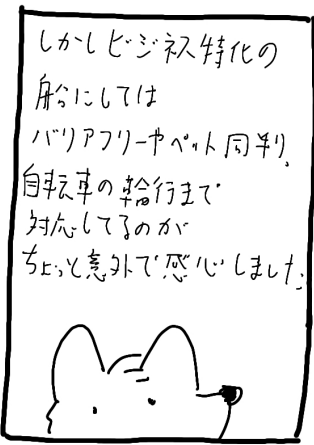 しかしビジネス特化の
船にしては
バリアフリーやペット同判、
自転車の輪行まで
対応してるのが
ちょっと意外で感心しました